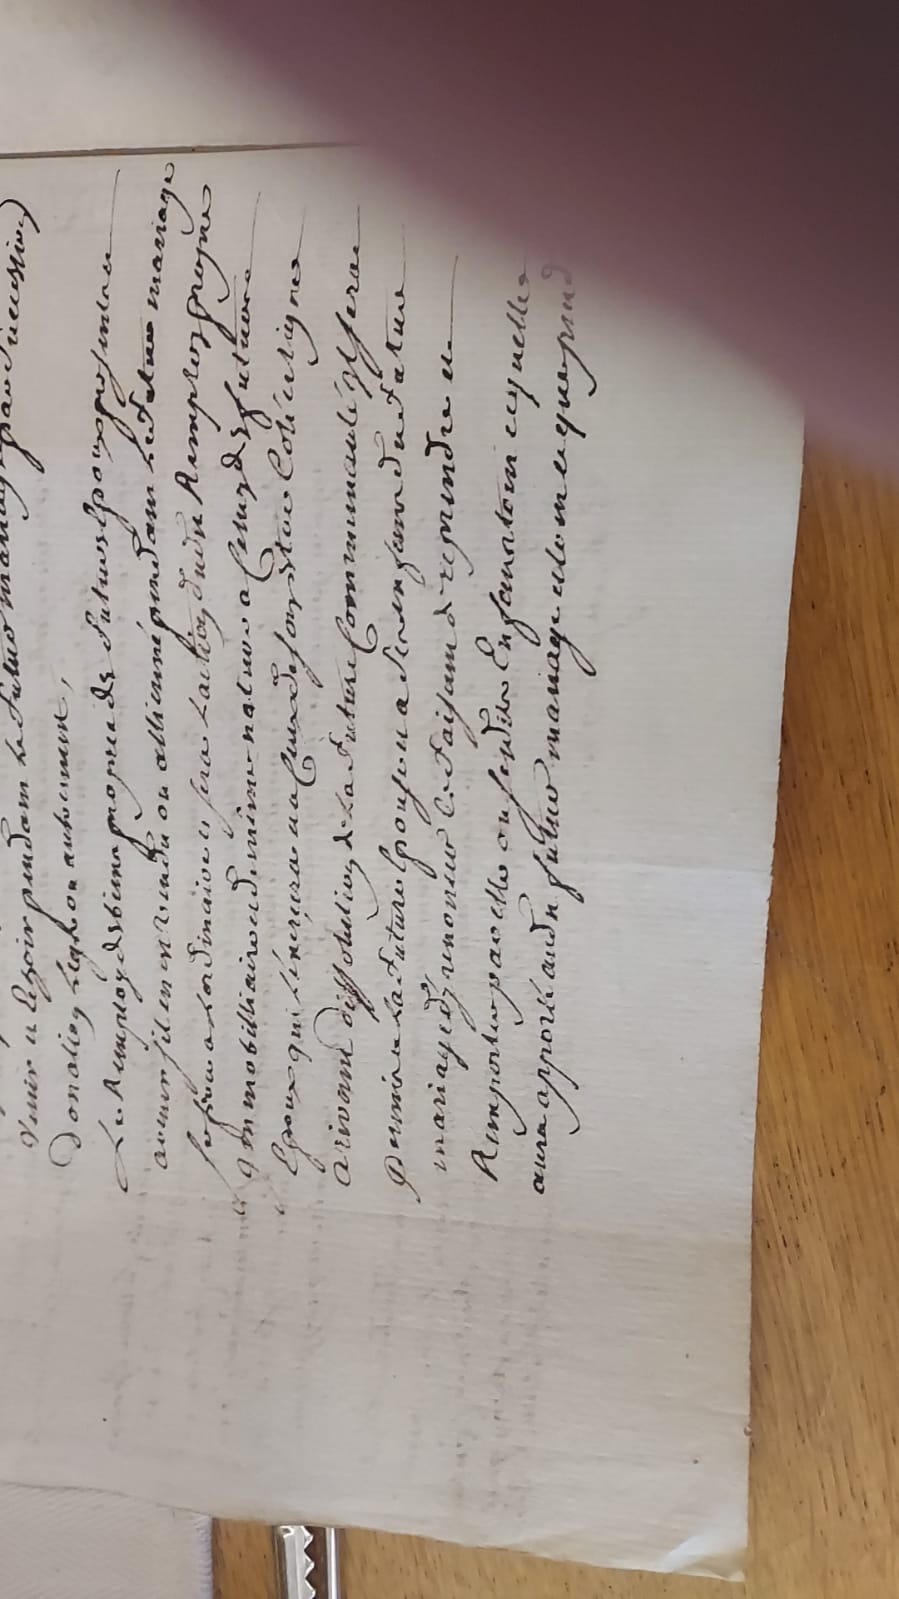 venir et Echoir pendant le futur mariage par succession
Donation Legs ou autrement,
Le Remploy des biens propres des futurs Epoux presents et
avenir sil en est vendu ou allienné pendant Le futur mariage
se fera a Lordinaire et sera Laction dudt Remploy propre
immobilliaire et de meme nature a Celuy des futurs
Epoux qui Lexercera et a Ceux de son Estoc Coté et Ligne
arivant dissolution de La future Communauté yl sera
permis a La future Epouse et a Ses enfans du futur
mariage dy renoncer Ce faisant de reprendre et
Remporter par elle ou sesdits Enfans tout ce quelle
aura apporté audt futur mariage et tout ce que pend